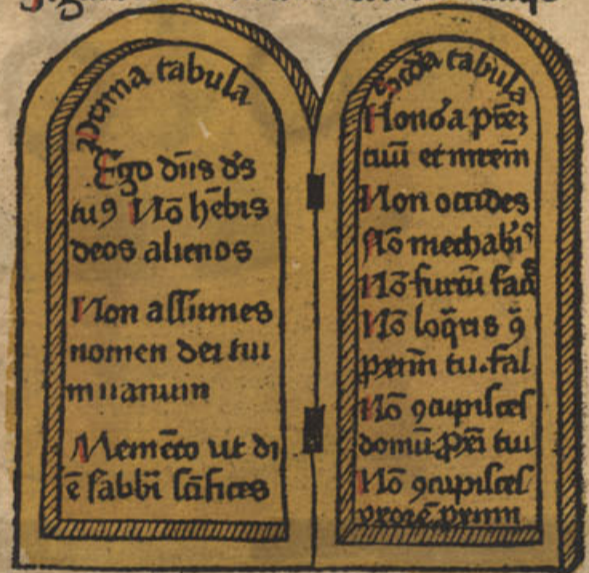 Prima tabula
Ego dñs ds̄
tuꝯ Nō hēbis
deos alienos
Non assumes
nomen dei tui
in uanum
Memēto ut di
ē sabbī sc̄ifices
Scda tabula
Honoꝛa ptrēꝫ
tuū et mr̄em
Non occides
Nō mechabis
Nō furtū faci
Nō loq̄ris ꝯ
pximū tu. fal
Nō ꝯcupisces
domū ꝓxi tui
Nō ꝯcupisces
vxorē pximi